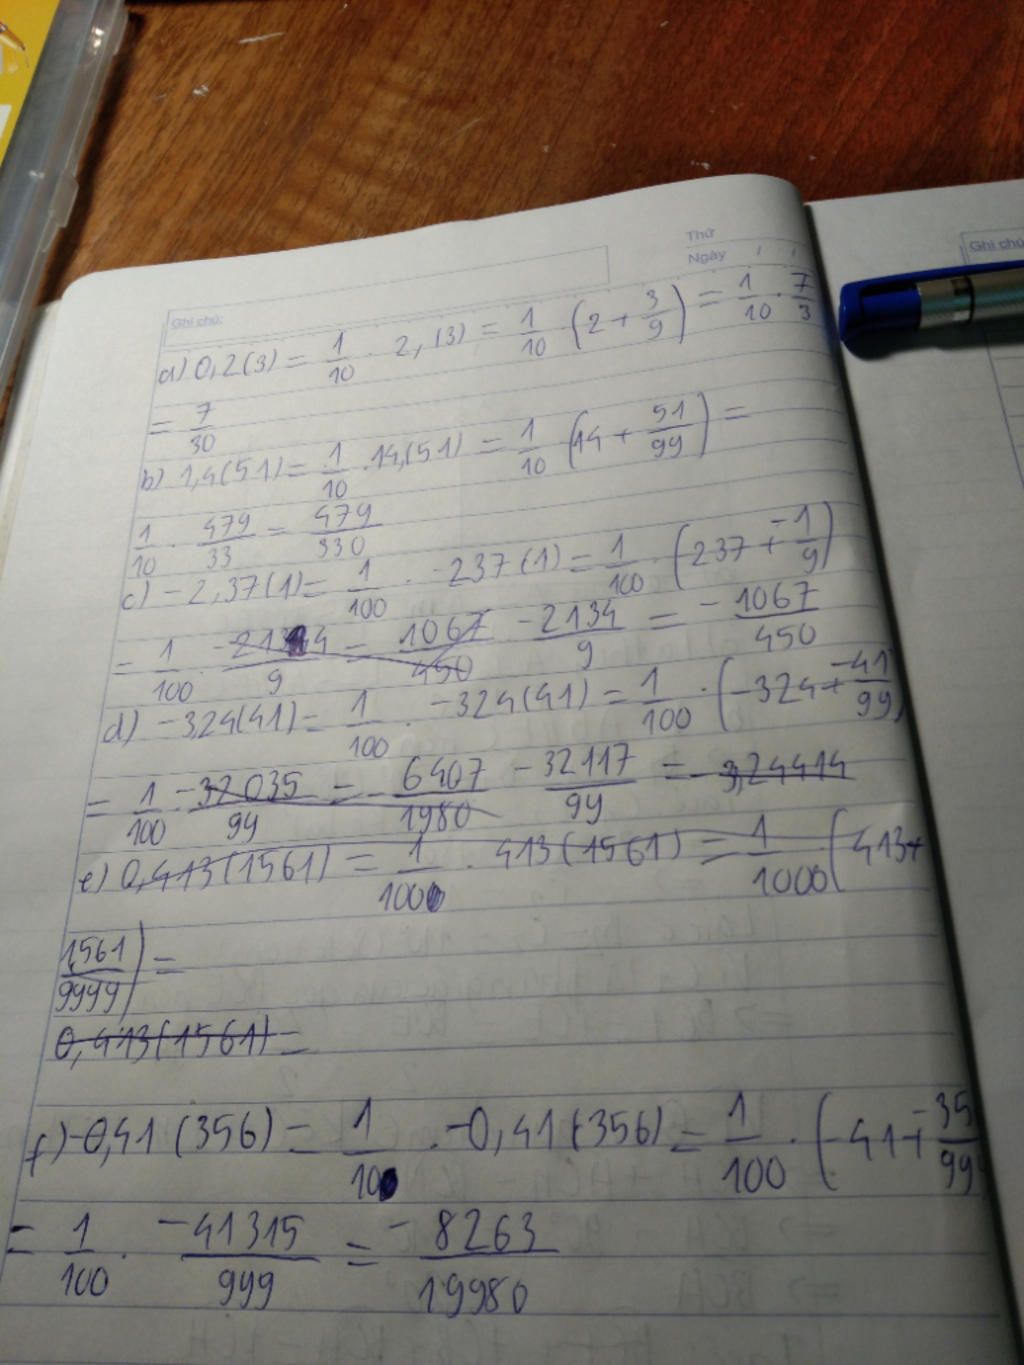 Thứ
Ngày / /
Ghi chú:
Ghi chú
a) 0,2(3) = 1/10 . 2,(3) = 1/10 (2 + 3/9) = 1/10 . 7/3
= 7/30
b) 1,4(51) = 1/10 . 14,(51) = 1/10 (14 + 51/99) =
1/10 . 479/33 = 479/330
c) -2,37(1) = 1/100 . -237(1) = 1/100 . (237 + -1/9)
= 1/100 . -2134/9 = 1067/450 -2134/9 = -1067/450
d) -324(41) = 1/100 . -324(41) = 1/100 . (-324 + -41/99)
= 1/100 -32035/99 = -6407/1980 -32117/99 = -3,24414
e) 0,413(1561) = 1/1000 . 413(1561) = 1/1000 (413+
1561/9999) =
0,413(1561) =
f) -0,41(356) = 1/100 . -0,41(-356) = 1/100 . (-41 + -35/99
= 1/100 . -41315/999 = -8263/19980